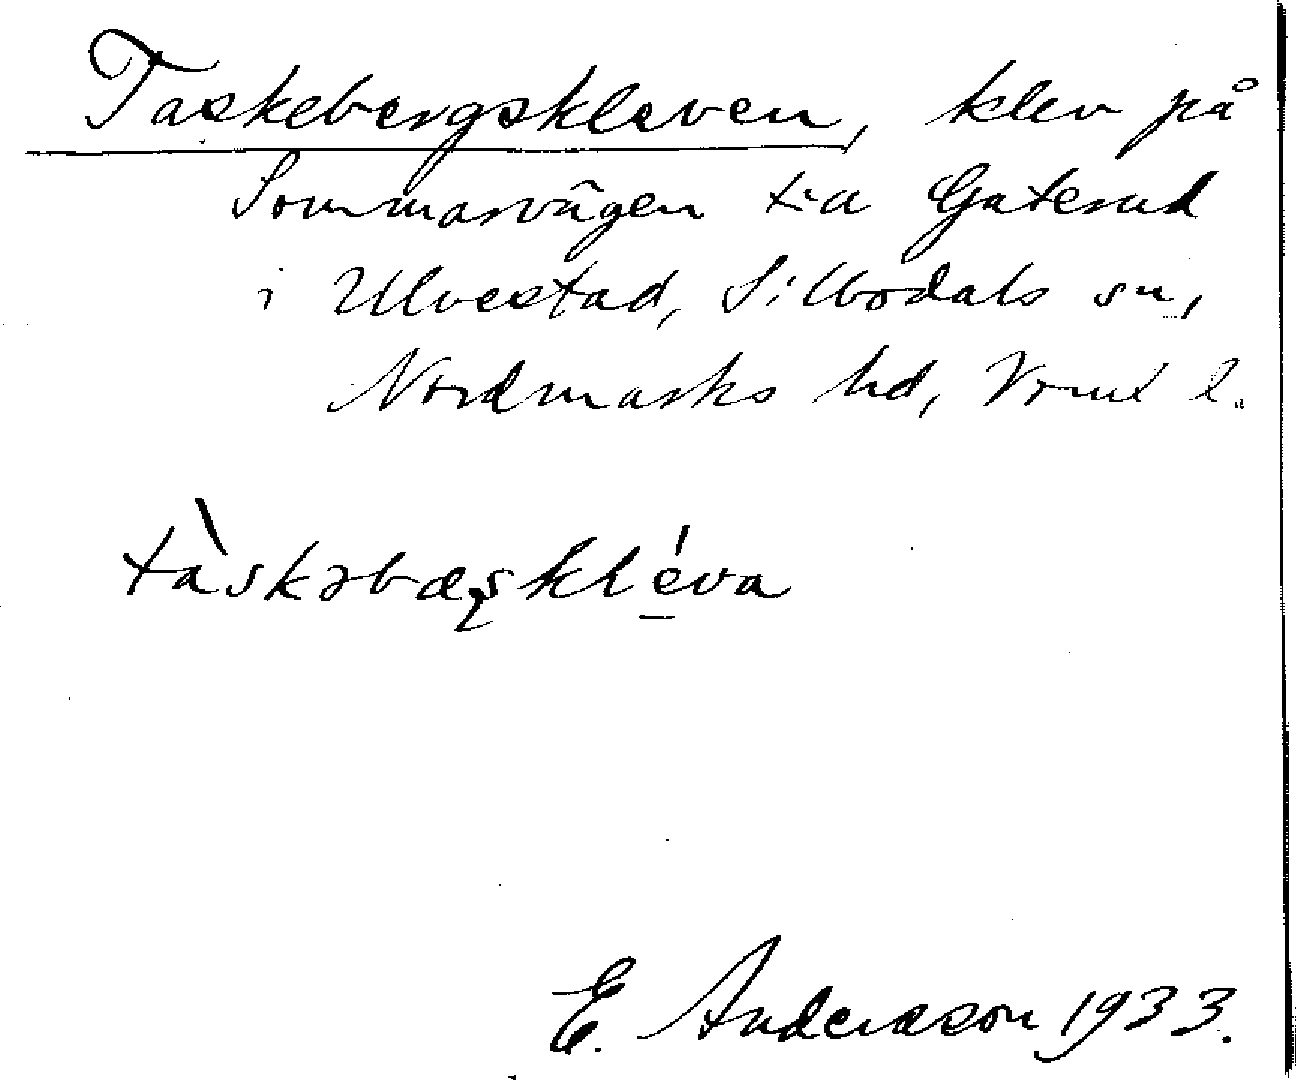 Taskebergskleven, klev på
Sommarvägen t.a Gaterud
i Ulvestad, Sillbodals sn,
Nordmarks hd, Vrml l.
tàskəbæŗskléva
E. Andersson 1933.